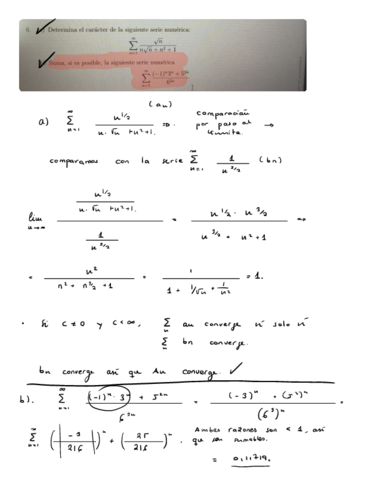 6. Determina el carácter de la siguiente serie numérica:
∞ ∑ n=1 √n / (n√n + n² + 1)
Suma, si es posible, la siguiente serie numérica
∞ ∑ n=1 ((-1)ⁿ3ⁿ + 5²ⁿ) / 6³ⁿ
(an)
a) ∞ ∑ n=1 n^1/2 / (n·√n + n²+1.) ⇒ comparación por paso al límite →
comparamos con la serie ∞ ∑ n=1 1 / n^3/2 (bn)
lim n→∞ (n^1/2 / (n·√n + n²+1.)) / (1 / n^3/2) = (n^1/2 · n^3/2) / (n^3/2 + n² + 1) ⇒
= n² / (n² + n^3/2 + 1) = 1 / (1 + 1/√n + 1/n²) = 1.
· Si C ≠ 0 y C < ∞, ∑ n an converge si solo si
∑ n bn converge.
bn converge así que an converge. ✓
b). ∞ ∑ n=1 ((-1)ⁿ · 3ⁿ + 5²ⁿ) / 6³ⁿ = ((-3)ⁿ · (5²)ⁿ) / (6³)ⁿ =
∞ ∑ n=1 (|-3 / 216|)ⁿ + (25 / 216)ⁿ Ambas razones son < 1, así
que son sumables.
= 0,11719.